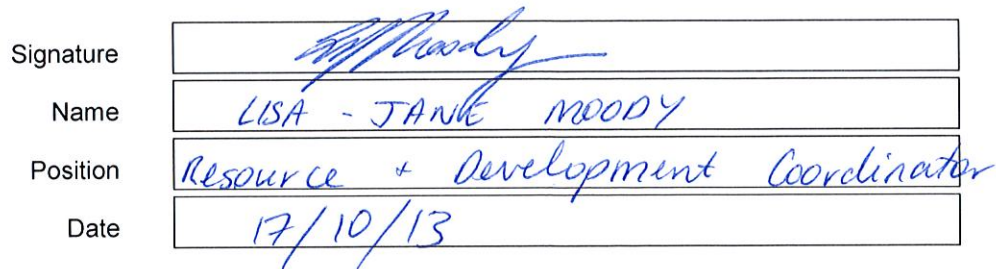 Signature
Name LISA - JANE MOODY
Position Resource + Development Coordinator
Date 17/10/13